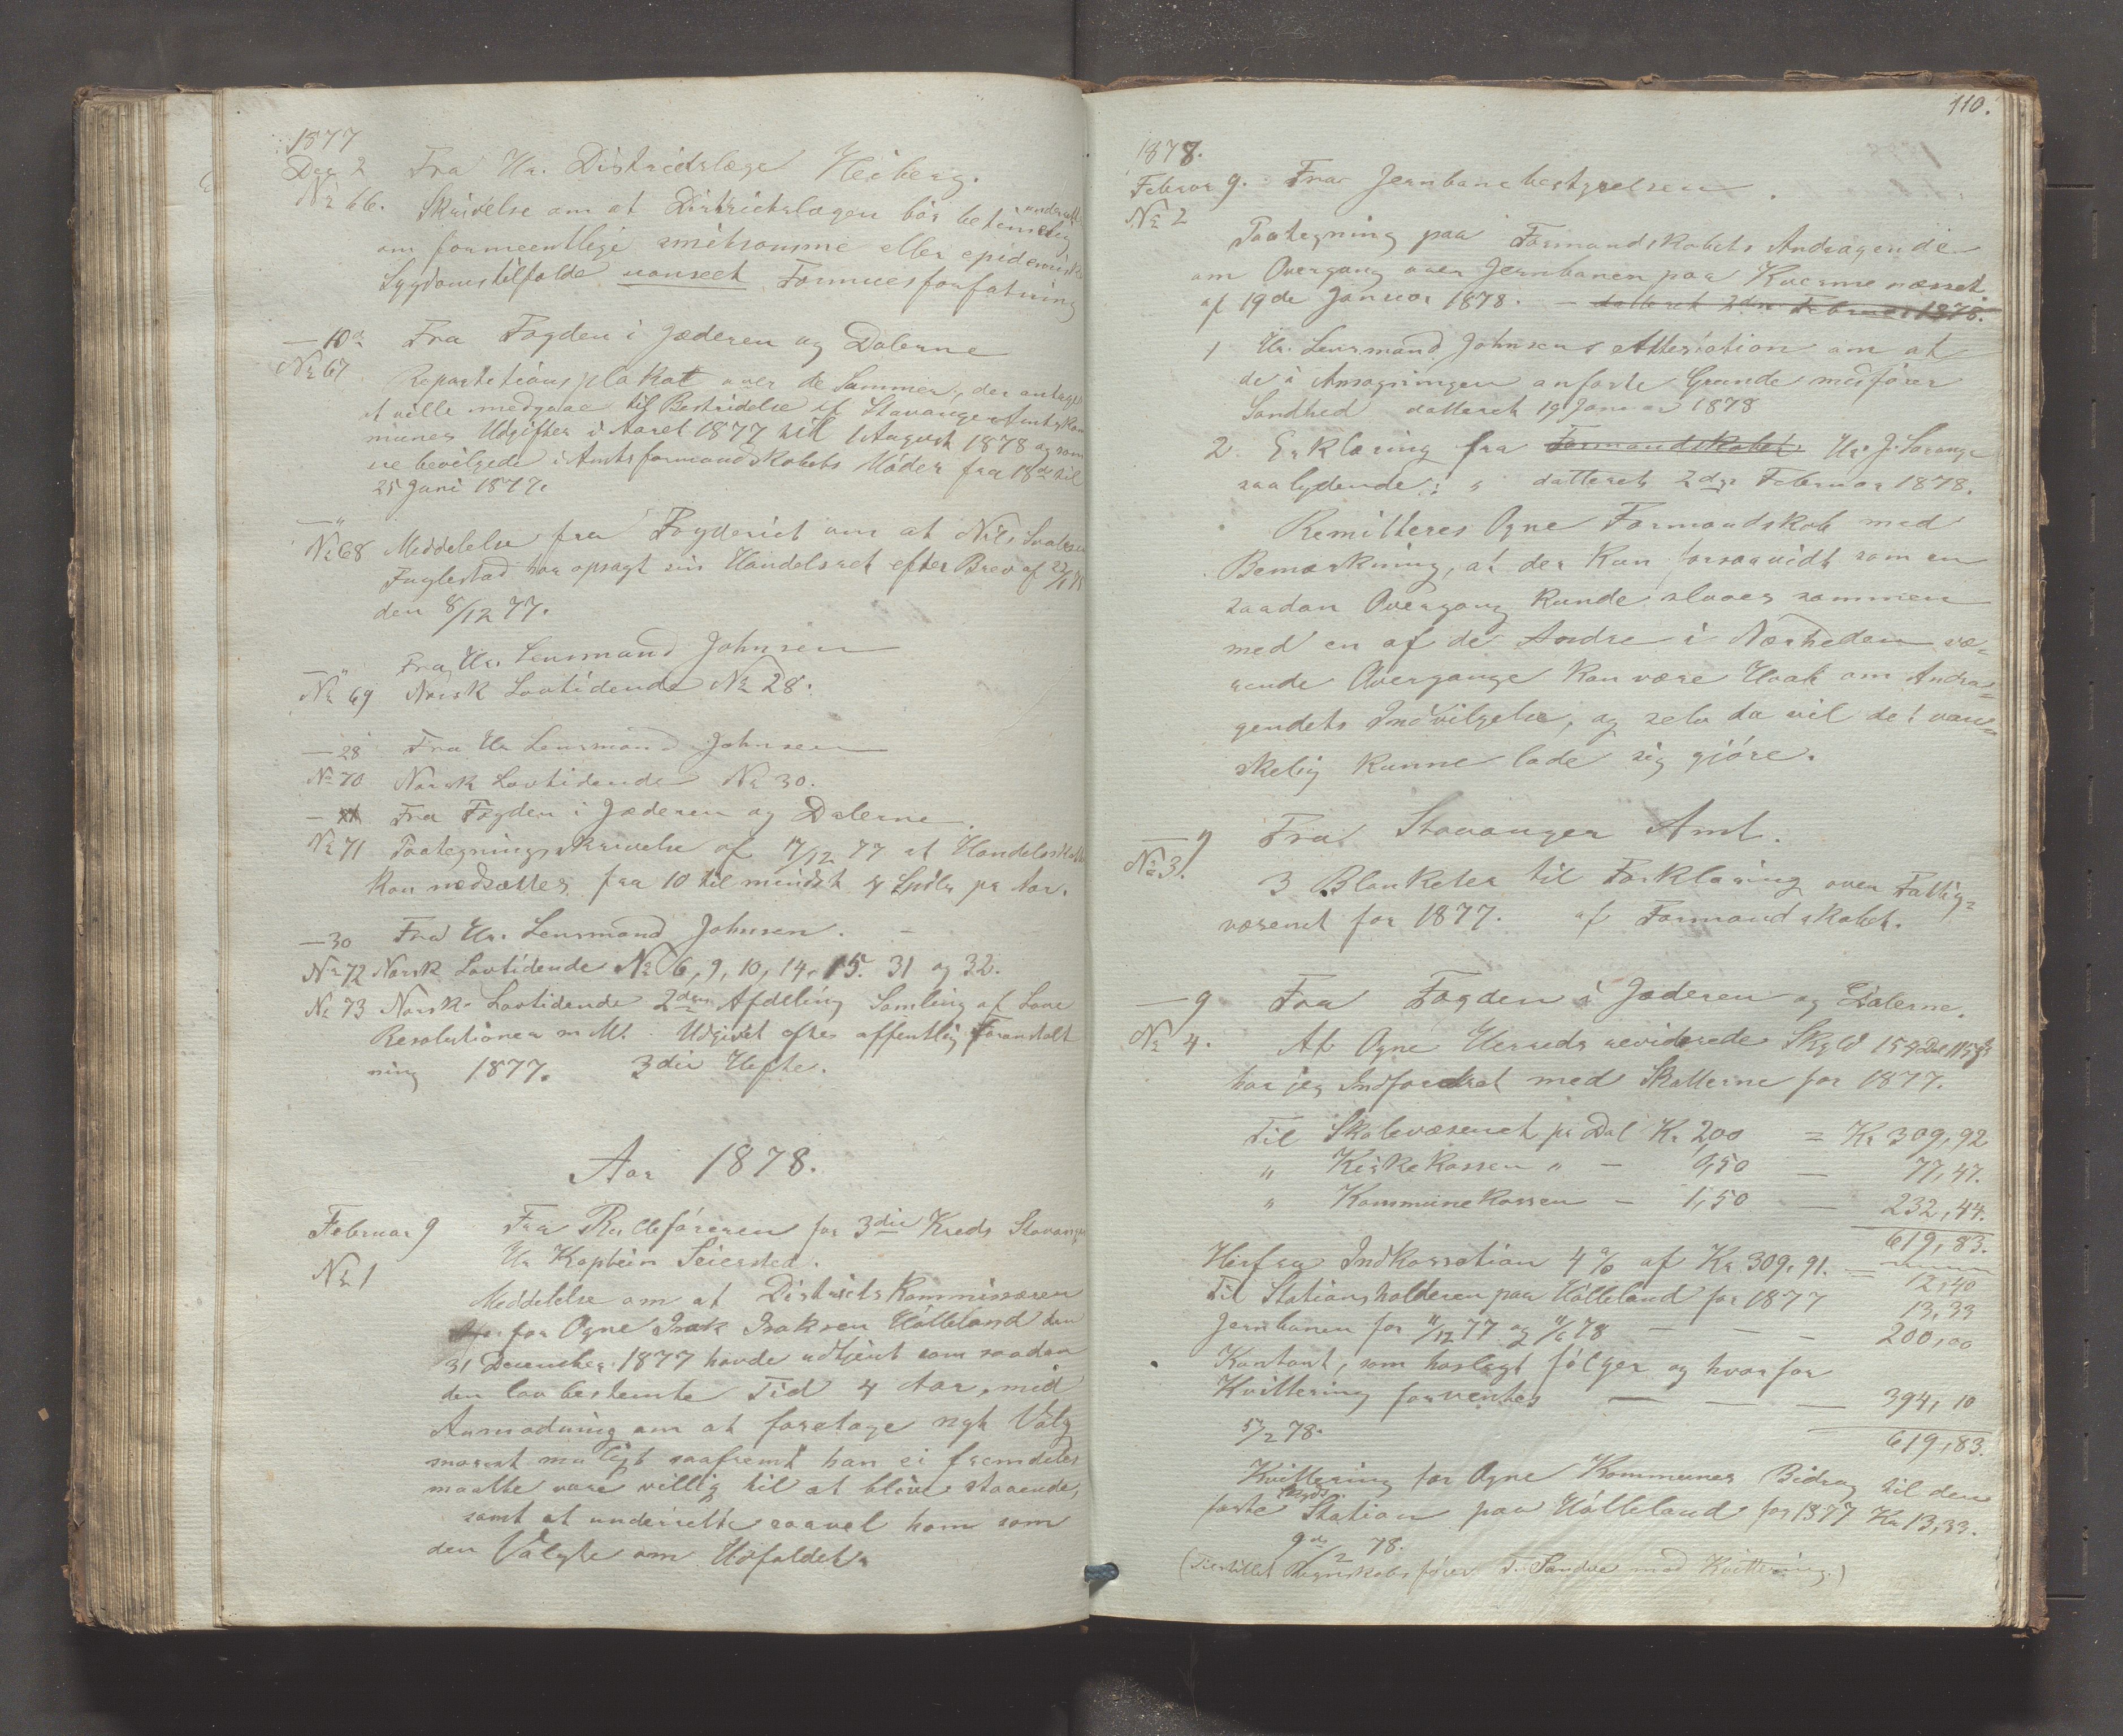 1877
Dec 2 Fra Hr. Districtslæge Heiberg.
No 66. Skrivelse om at Districtslægen bör betimelig underrettes
om formeentlige smitsomme eller epidemiske
Sygdomstilfælde uanseet Formuesforfatning
— 10de Fra Fogden i Jæderen og Dalerne
No 67 Repartetionsplakat over de Summer, der antages
at ville medgaae til Bestridelse af Stavanger Amtskom
munes Udgifter i Aaret 1877 til 1 August 1878 og som
ere bevilgede i Amtsformandskabets Möder fra 18de til
25 Juni 1877.
— "
No 68 Meddelelse fra Fogderiet om at Nils
Fuglestad har opsagt sin Handelsret efter Brev af
den 8/12 77.
Fra Hr. Lensmand Johnsen
— "
No 69 Norsk Lovtidende No 28.
— 28 Fra Hr Lensmand Johnsen
No 70 Norsk Lovtidende No 30.
— Fra Fogden i Jæderen og Dalerne
No 71 Paategningsskrivelse af 17/12 77 at Handelsskatten
kan nedsættes fra 10 til mindst 4 Spdlr pr Aar.
— 30 Fra Hr. Lensmand Johnsen.
No 72 Norsk Lovtidende No 6, 9, 10, 14, 15. 31 og 32.
No 73 Norsk Lovtidende 2den Afdeling Samling af Love
Resolutioner m M. Udgivet efter offentlig Foranstalt
ning 1877. 3die Hefte.
Aar 1878.
Februar 9 Fra Rulleföreren for 3die Kreds Stavanger
Hr Kaptein Seiersted.
No 1
Meddelelse om at Districtskommissæren
for Ogne Isak Isaksen Hölleland den
31 December 1877 havde udtjent som saadan
den lov bestemte Tid 4 Aar, med
Anmodning om at foretage nyt Valg
snarest muligt saafremt han ei fremdeles
maatte være villig til at blive staaende,
samt at underrette saavel ham som
den Valgte om Udfaldet.
110.
1878.
Februar 9. Fra Jernbanebestyrelsen.
No 2
Paategning paa Formandskabets Andragende
om Overgang over Jernbanen paa Kvernenæsset
af 19de Januar 1878. — datteret 2den Februar 1878.
1 Hr. Lensmand Johnsens Attestation om at
de i Ansøgningen anførte Grunde medfører
Sandhed datteret 19 Januar 1878
2. Erklæring fra Formandskabet Hr. J.
saalydende: " datteret 2den Februar 1878.
Remitteres Ogne Formandskab med
Bemærkning, at der kun forsaavidt som en
saadan Overgang kunde slaaes sammen
med en af de Andre i Nærheden væ-
rende Overgange kan være Haab om Andra=
gendets Indvilgelse, og selv da vil det van=
skelig kunne lade sig gjöre.
— 9 Fra Stavanger Amt.
No 3. 3 Blanketer til Forklaring over Fattig=
væsenet for 1877. af Formandskabet.
— 9 Fra Fogden i Jæderen og Dalerne.
No 4. Af Ogne Herreds reviderede Skyld 154 Dal
har jeg Indfordret med Skatterne for 1877.
Til Skolevæsenet pr Dal Kr 2,00 = Kr 309,92
" Kirkekassen " — 0,50 — 77,47.
" Kommunekassen — 1,50 — 232,44.
619,83.
Herfra Indkassation 4 % af Kr 309,91. = 12,40
Til Stationsholderen paa Hölleland for 1877 13,33
Jernbanen for 11/12 77 og 11/6 78 — — — 200,00
Kontant, som hoslagt fölger og hvorfor
Kvittering forventes — — — 394,10
5/2 78. 619,83.
Kvittering for Ogne Kommunes Bidrag til den
faste Skyds Station paa Hölleland for 1877 Kr 13,33.
9de/2 78.
(Tilstillet Regnskabsförer T. Sandve med Kvittering.)